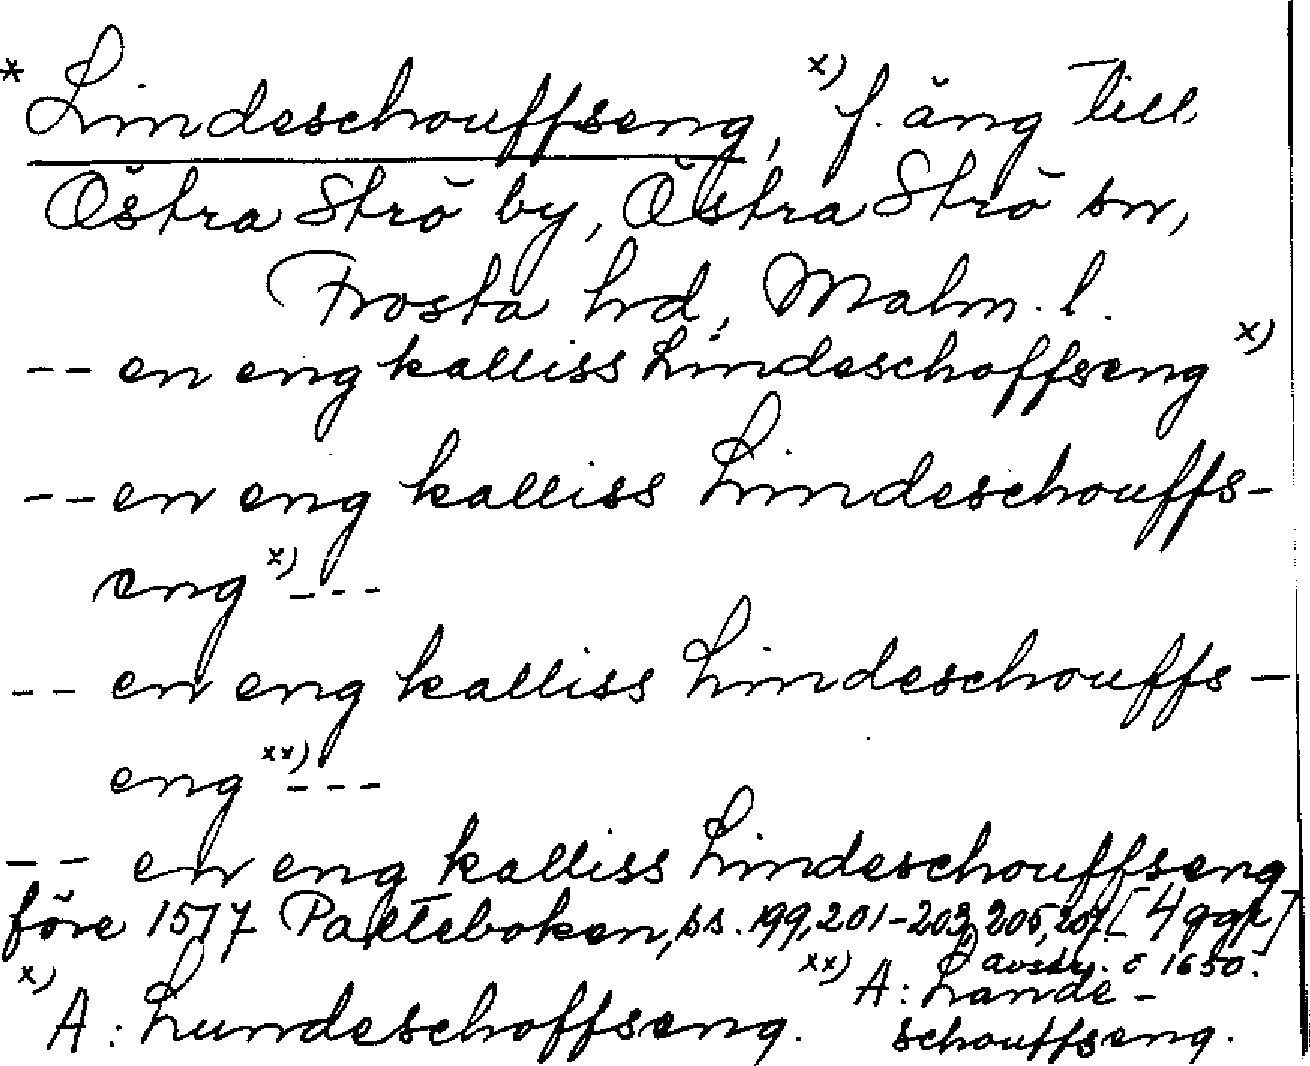 * Lindeschouffseng, x) f. äng till
Östra Strö by, Östra Strö sn,
Frosta hd, Malm. l.
-- en eng kalliss Lindeschoffseng x)
-- en eng kalliss Lindeschouffs-
eng x) ---
-- en eng kalliss Lindeschouffs-
eng xx) ---
-- en eng kalliss Lindeschouffseng
före 1577 Palteboken, ss. 199, 201-203, 205, 207. [4 ggr]
avskr. c 1650.
x) A: Lundeschoffseng.
xx) A: Lande-
schouffseng.